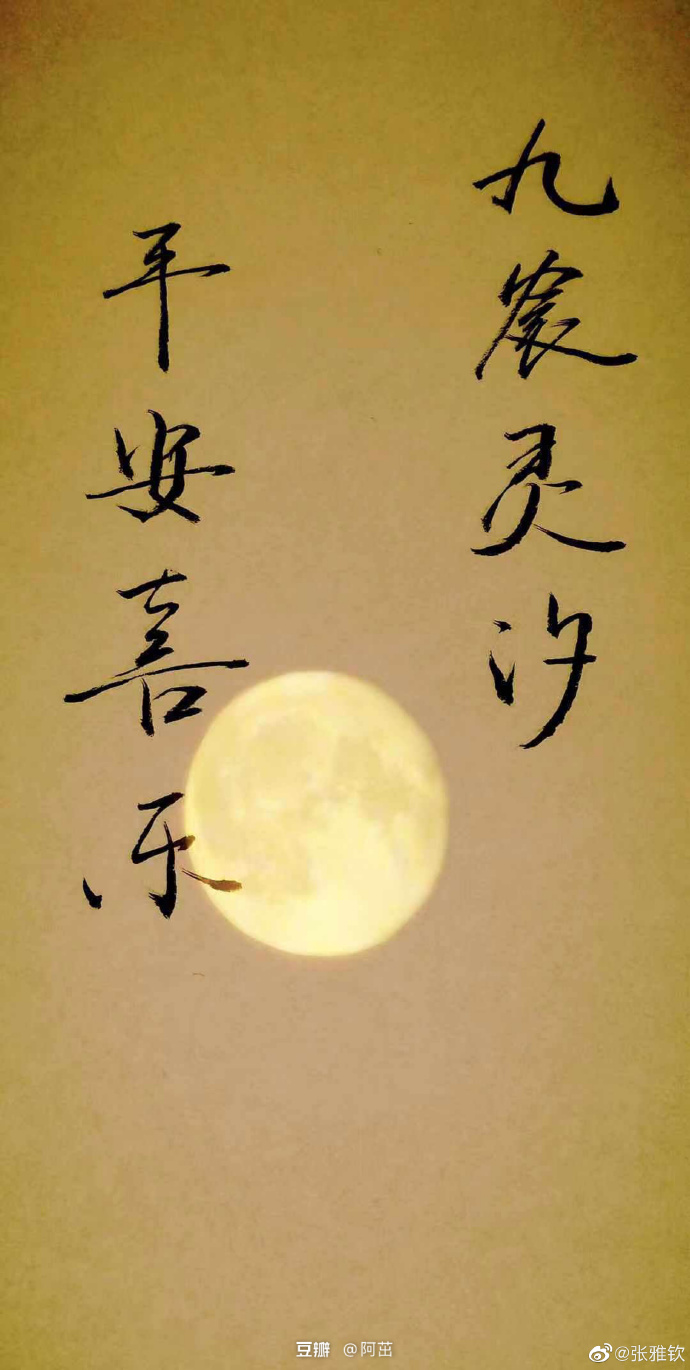 九宸灵汐
平安喜乐
豆瓣 @阿茁
@张雅钦